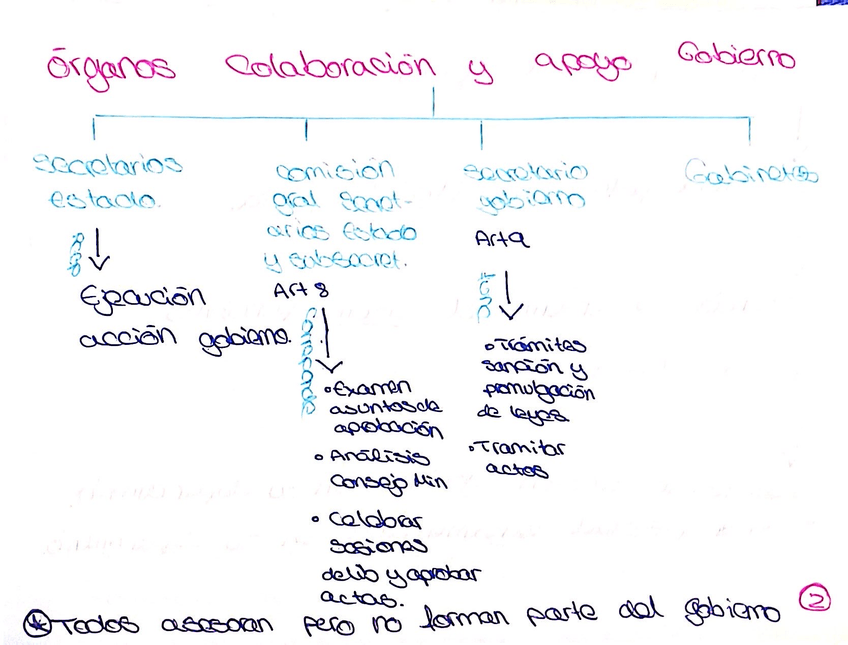 Órganos Colaboración y apoyo Gobierno
Secretarios
estado.
Ejecución
acción gobierno.
Comisión
gral Secret-
arios Estado
y subsecret.
Art 8
Corresponde
• Examen
asuntos de
aprobación
• Análisis
Consejo Min
• Celebrar
sesiones
delib y aprobar
actas.
Secretario
gobierno
Art 9
• Trámites
sanción y
promulgación
de leyes
• Tramitar
actos
Gabinetes
* Todos asesoran pero no forman parte del gobierno
2